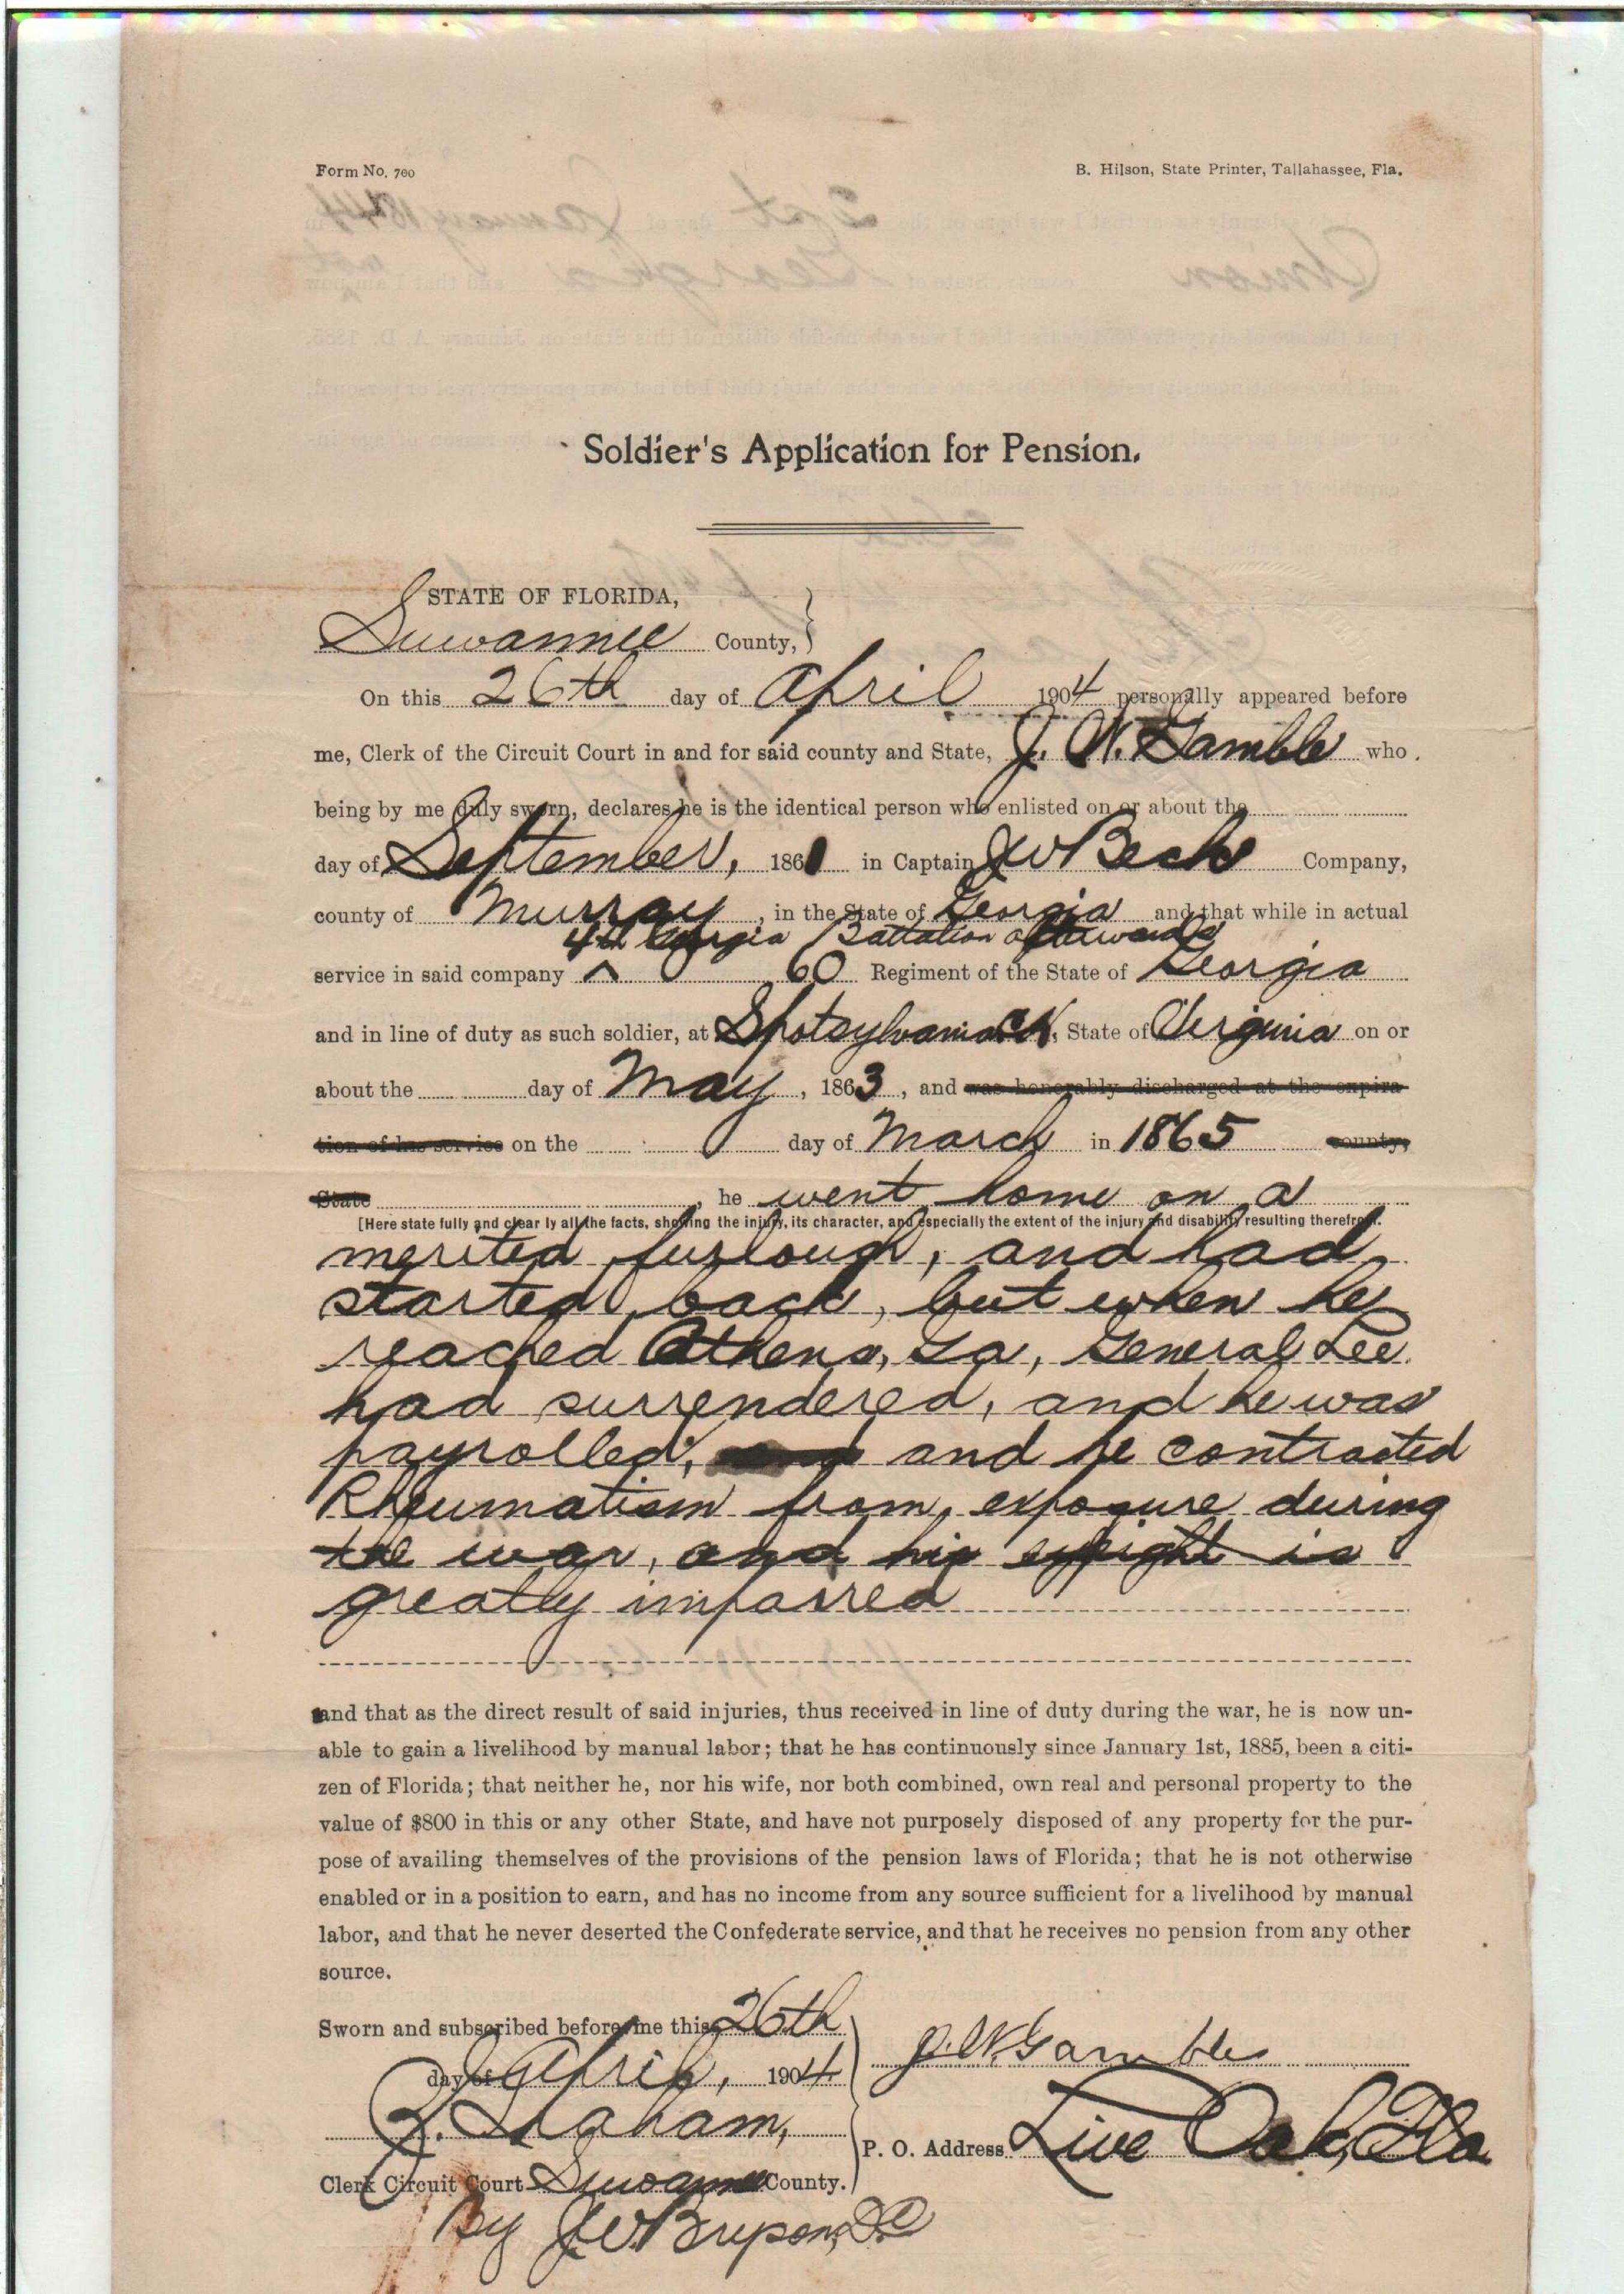 Form No. 700
B. Hilson, State Printer, Tallahassee, Fla.
Soldier's Application for Pension.
STATE OF FLORIDA,
Suwannee County,
On this 26th day of April 1904 personally appeared before
me, Clerk of the Circuit Court in and for said county and State, J. W. Gamble who
being by me duly sworn, declares he is the identical person who enlisted on or about the
day of September, 1861 in Captain J W Beck Company,
county of Murray, in the State of Georgia and that while in actual
4th Georgia Battalion afterwards
service in said company ^ 60 Regiment of the State of Georgia
and in line of duty as such soldier, at Spotsylvania CH, State of Virginia on or
about the day of May, 1863, and was honorably discharged at the expira
tion of his service on the day of March in 1865 county,
State , he went home on a
[Here state fully and clear ly all the facts, showing the injury, its character, and especially the extent of the injury and disability resulting therefrom.
merited furlough, and had
started back, but when he
reached Athens, Ga, General Lee
had surrendered, and he was
payrolled, and he contracted
Rheumatism from exposure during
the war, and his eyesight is
greatly imparred
and that as the direct result of said injuries, thus received in line of duty during the war, he is now un-
able to gain a livelihood by manual labor; that he has continuously since January 1st, 1885, been a citi-
zen of Florida; that neither he, nor his wife, nor both combined, own real and personal property to the
value of $800 in this or any other State, and have not purposely disposed of any property for the pur-
pose of availing themselves of the provisions of the pension laws of Florida; that he is not otherwise
enabled or in a position to earn, and has no income from any source sufficient for a livelihood by manual
labor, and that he never deserted the Confederate service, and that he receives no pension from any other
source.
Sworn and subscribed before me this 26th
day of April, 1904
J. W. Gamble
P. O. Address Live Oak, Fla
Clerk Circuit Court Suwannee County.
By J W Bryson, D.C